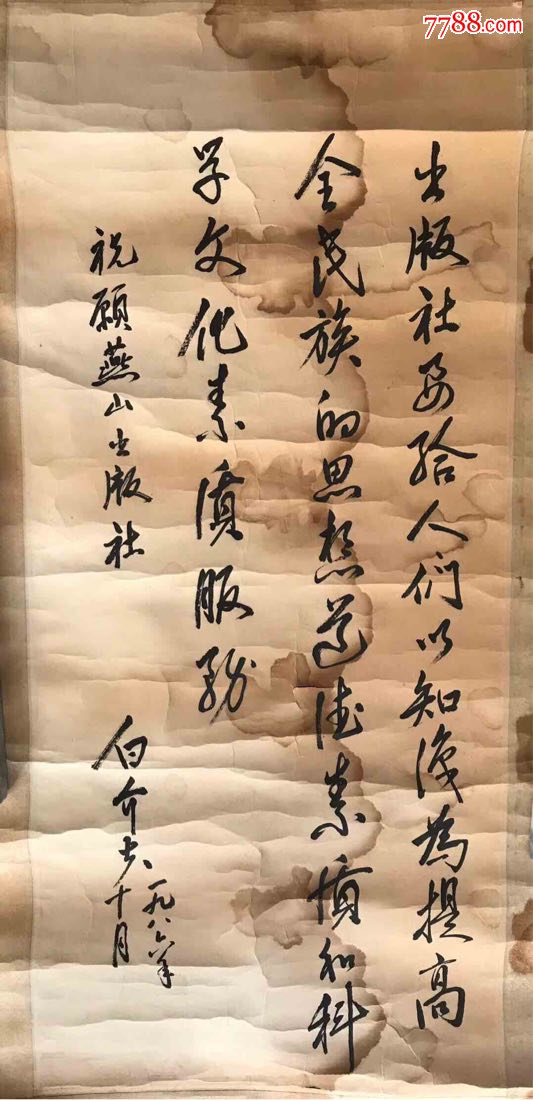 7788.com
出版社要給人們以知識為提高
全民族的思想道德素質和科
学文化素質服務
祝願燕山出版社
白介夫
一九八六年
十月